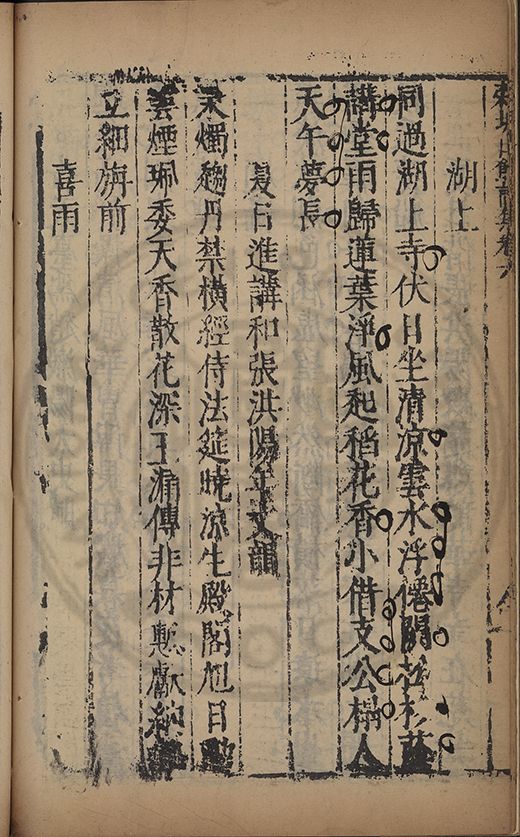 集卷六
湖上
同過湖上寺伏日坐清凉雲水浮僊閣松杉蔭
講堂雨歸蓮葉淨風起稻花香小借支公榻人
天午夢長
夏日進講和張洪陽年丈韻
燭趨丹禁橫經侍法筵曉凉生殿閣旭日
雲煙珮委天香散花深玉漏傳非材慙獻納
立細旃前
喜雨